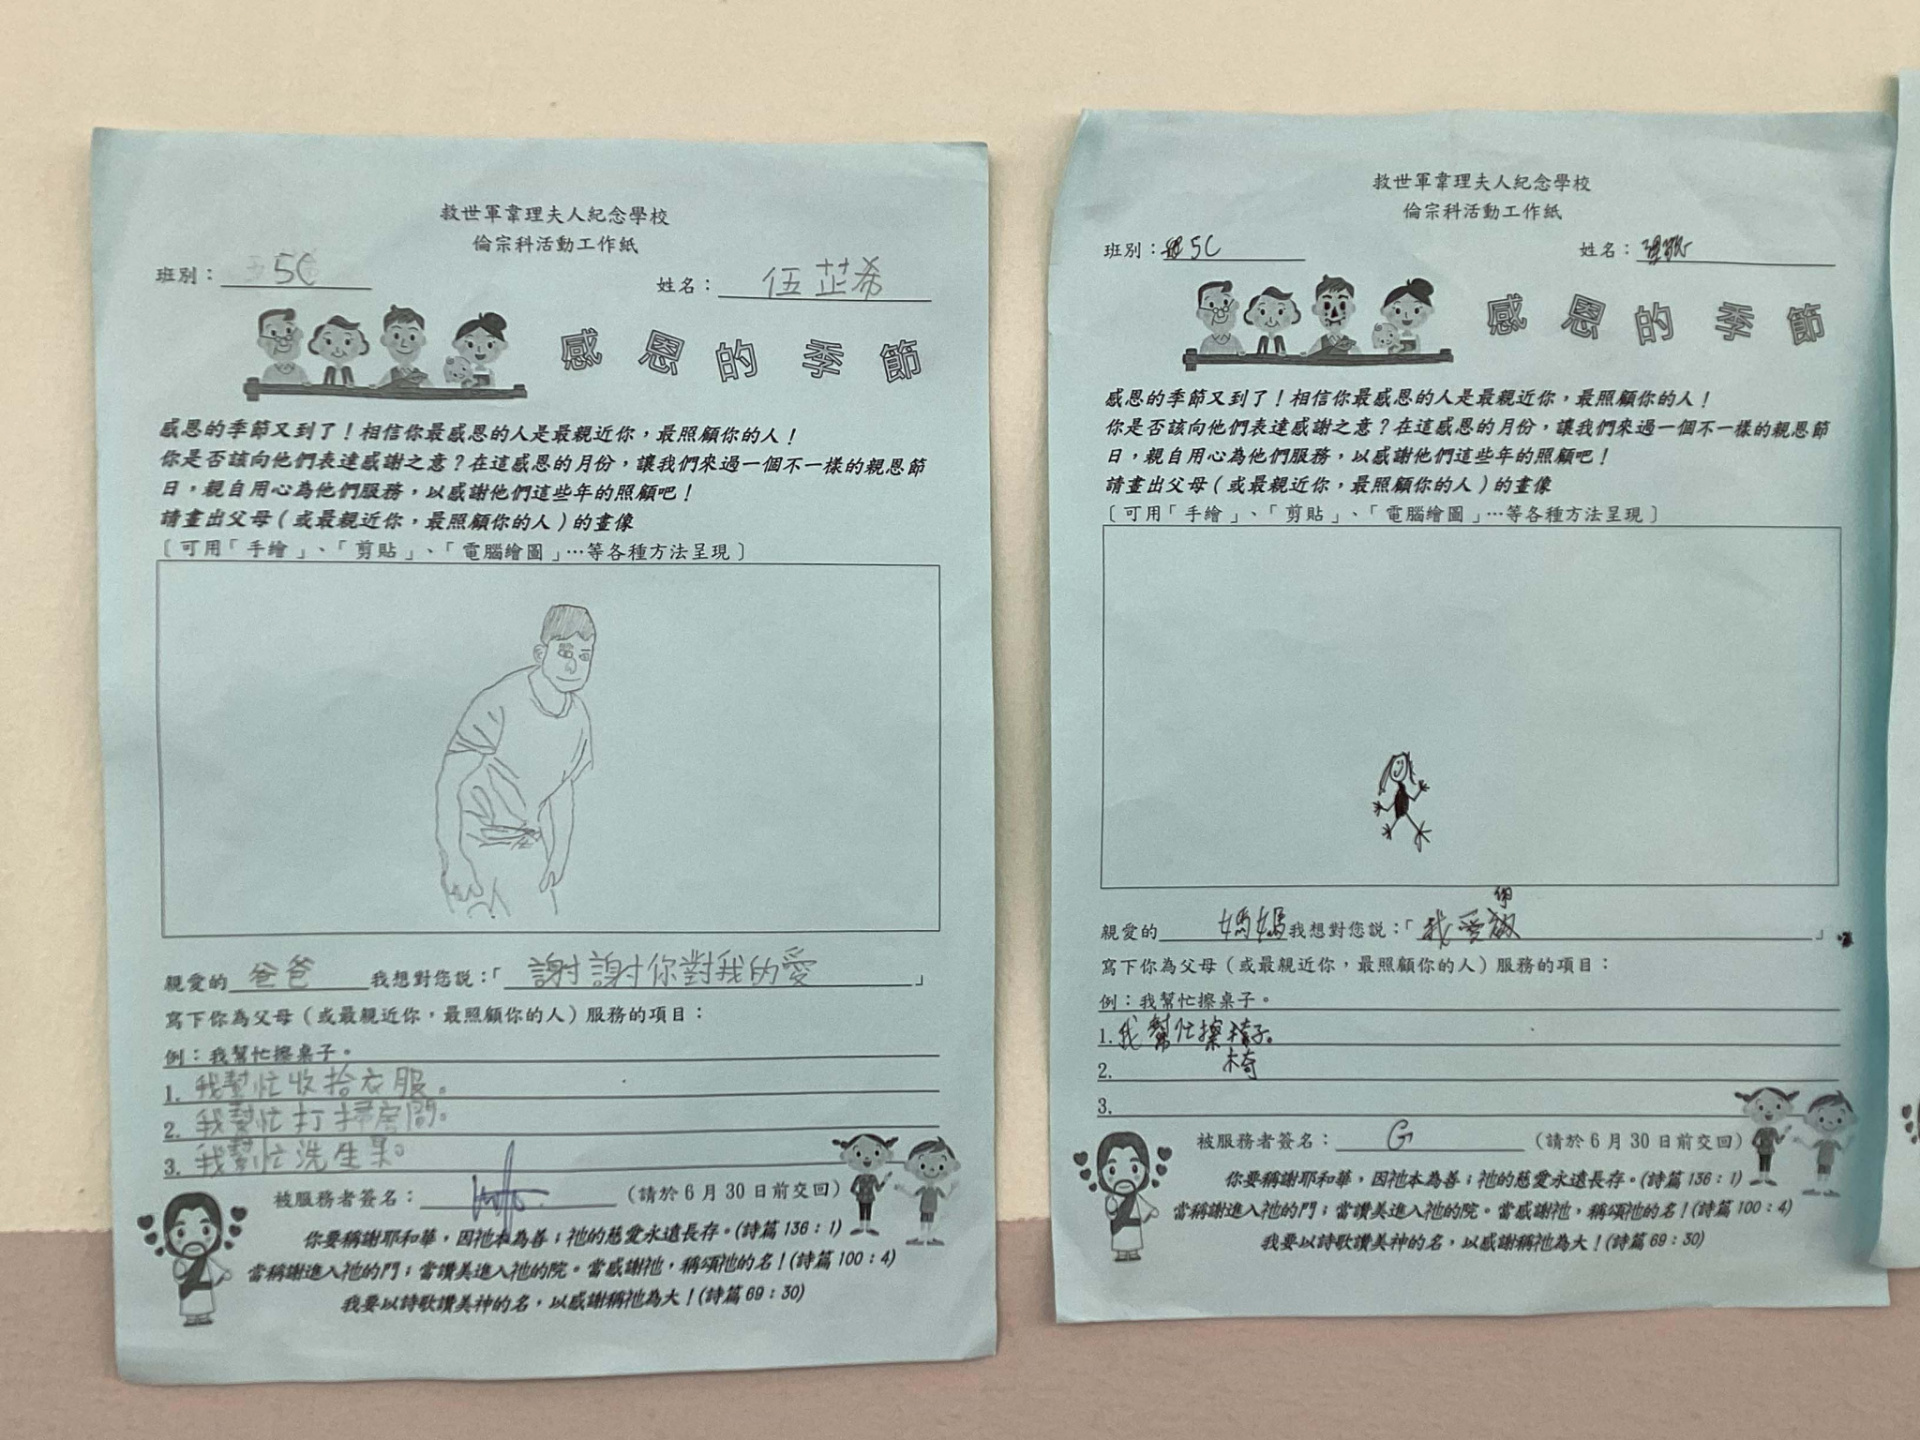 救世軍韋理夫人紀念學校
倫宗科活動工作紙
班別：5C 姓名：伍芷希
感恩的季節
感恩的季節又到了！相信你最感恩的人是最親近你，最照顧你的人！
你是否該向他們表達感謝之意？在這感恩的月份，讓我們來過一個不一樣的親恩節
日，親自用心為他們服務，以感謝他們這些年的照顧吧！
請畫出父母（或最親近你，最照顧你的人）的畫像
〔可用「手繪」、「剪貼」、「電腦繪圖」…等各種方法呈現〕
親愛的爸爸我想對您說：「謝謝你對我的愛」
寫下你為父母（或最親近你，最照顧你的人）服務的項目：
例：我幫忙擦桌子。
1. 我幫忙收拾衣服。
2. 我幫忙打掃房間。
3. 我幫忙洗生果。
被服務者簽名： （請於6月30日前交回）
你要稱謝耶和華，因祂本為善；祂的慈愛永遠長存。(詩篇136：1)
當稱謝進入祂的門；當讚美進入祂的院。當感謝祂，稱頌祂的名！(詩篇100：4)
我要以詩歌讚美神的名，以感謝稱祂為大！(詩篇69：30)
救世軍韋理夫人紀念學校
倫宗科活動工作紙
班別：5C 姓名：
感恩的季節
感恩的季節又到了！相信你最感恩的人是最親近你，最照顧你的人！
你是否該向他們表達感謝之意？在這感恩的月份，讓我們來過一個不一樣的親恩節
日，親自用心為他們服務，以感謝他們這些年的照顧吧！
請畫出父母（或最親近你，最照顧你的人）的畫像
〔可用「手繪」、「剪貼」、「電腦繪圖」…等各種方法呈現〕
親愛的媽媽我想對您說：「我愛」
寫下你為父母（或最親近你，最照顧你的人）服務的項目：
例：我幫忙擦桌子。
1. 我幫忙擦椅子。
椅
2.
3.
被服務者簽名：G （請於6月30日前交回）
你要稱謝耶和華，因祂本為善；祂的慈愛永遠長存。(詩篇136：1)
當稱謝進入祂的門；當讚美進入祂的院。當感謝祂，稱頌祂的名！(詩篇100：4)
我要以詩歌讚美神的名，以感謝稱祂為大！(詩篇69：30)